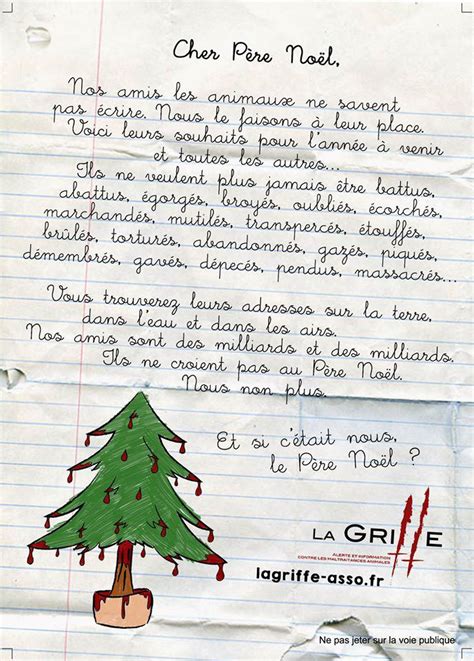 Cher Père Noël,
Nos amis les animaux ne savent
pas écrire. Nous le faisons à leur place.
Voici leurs souhaits pour l'année à venir
et toutes les autres...
Ils ne veulent plus jamais être battus,
abattus, égorgés, broyés, oubliés, écorchés,
marchandés, mutilés, transpercés, étouffés,
brûlés, torturés, abandonnés, gazés, piqués,
démembrés, gavés, dépecés, pendus, massacrés...
Vous trouverez leurs adresses sur la terre,
dans l'eau et dans les airs.
Nos amis sont des milliards et des milliards.
Ils ne croient pas au Père Noël.
Nous non plus.
Et si c'était nous,
le Père Noël ?
LA GRIffE
ALERTE ET INFORMATION
CONTRE LES MALTRAITANCES ANIMALES
lagriffe-asso.fr
Ne pas jeter sur la voie publique